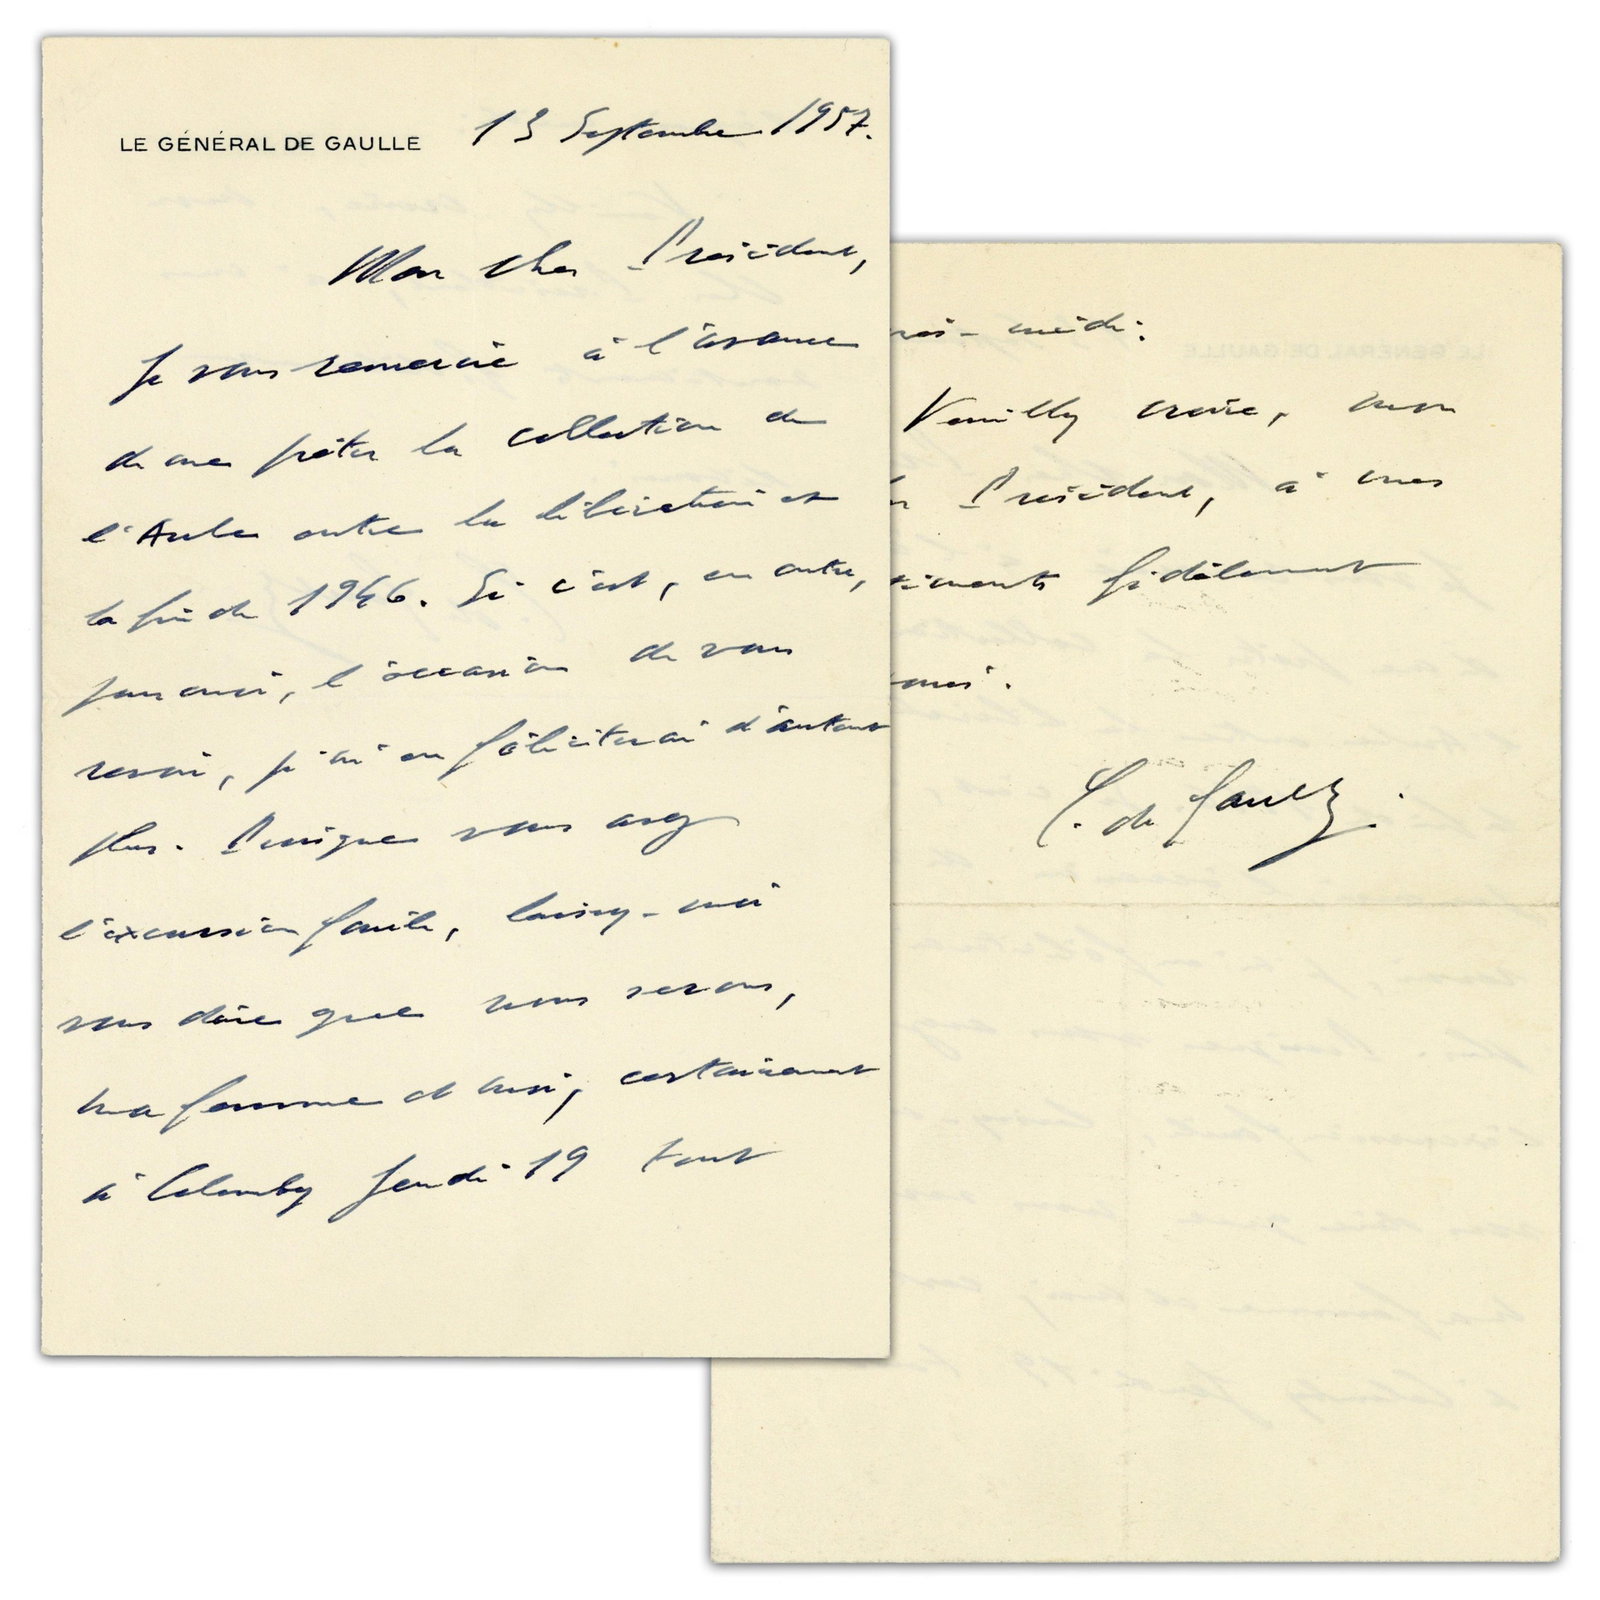 LE GÉNÉRAL DE GAULLE 13 Septembre 1957.
Mon cher Président,
Je vous remercie à l'avance
de me prêter la collection de
l'Aube entre la libération et
la fin de 1946. Si c'est, en outre,
pour moi, l'occasion de vous
revoir, je m'en féliciterai d'autant
plus. Puisque vous avez
l'excursion facile, laissez-moi
vous dire que nous serons,
ma femme et moi, certainement
à Colombey Jeudi 19 tout
midi.
Veuillez croire, mon
Président, à mes
fidèlement
C. de Gaulle.